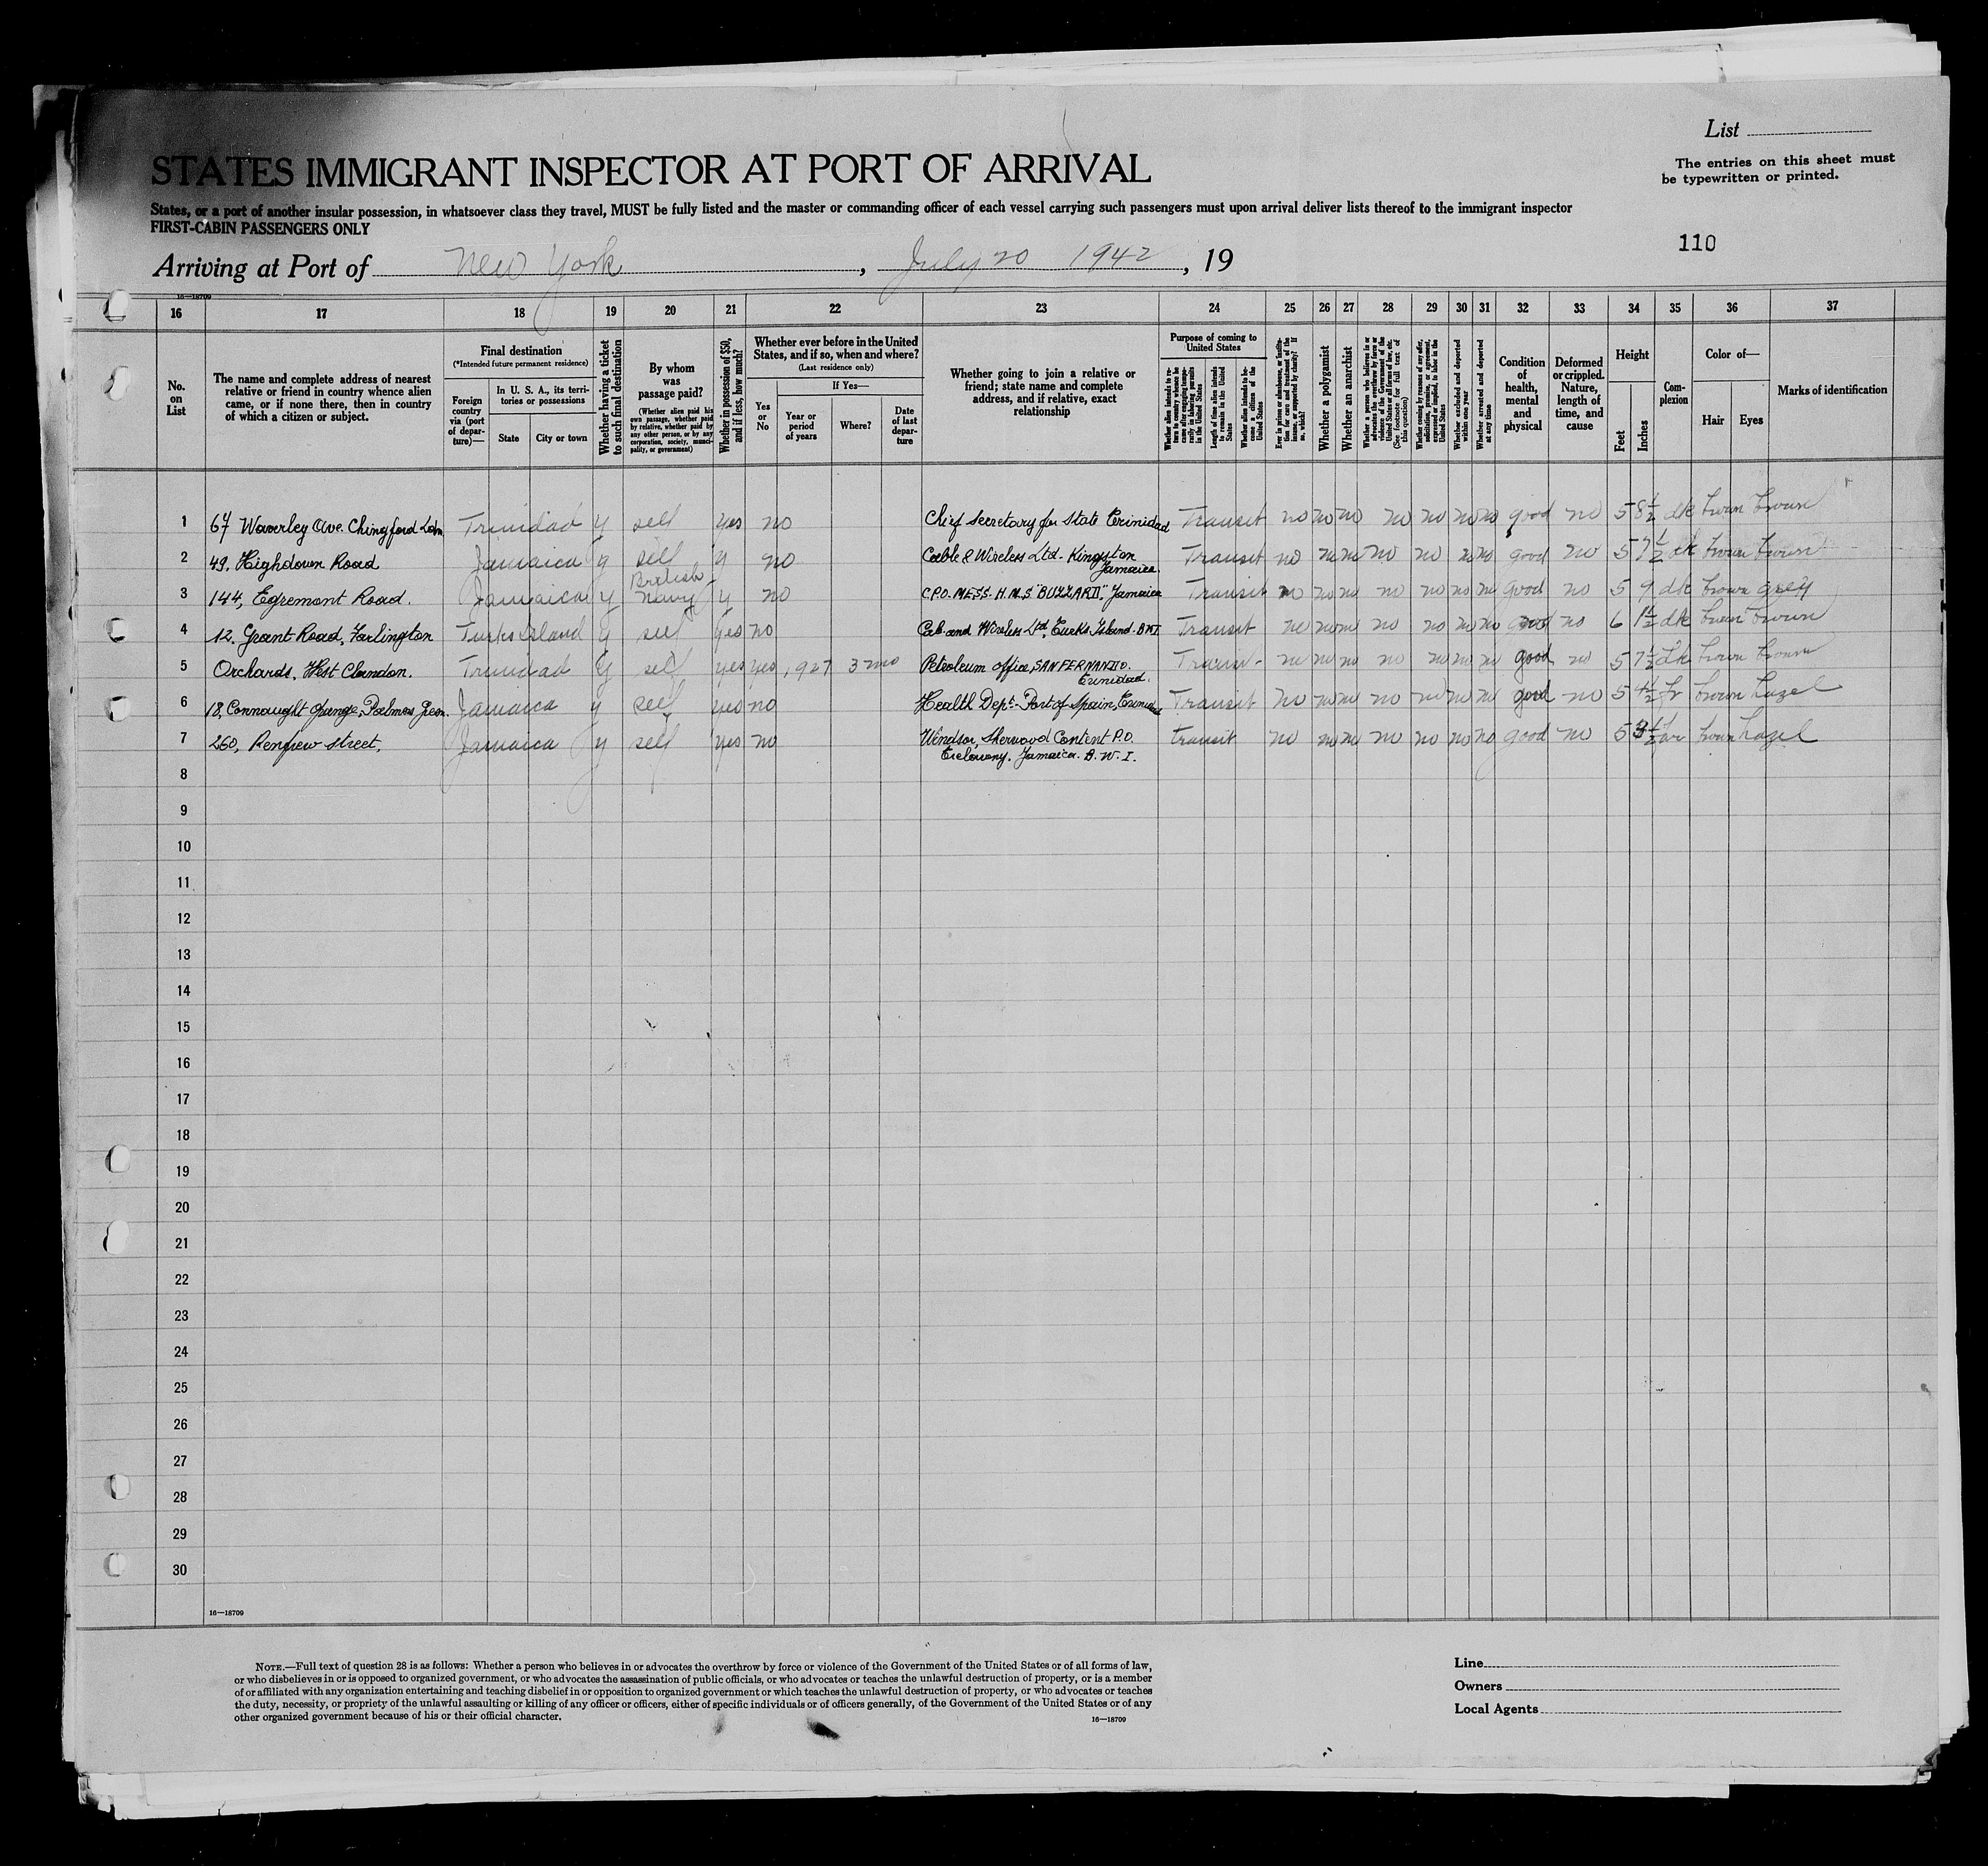 List
The entries on this sheet must
be typewritten or printed.
STATES IMMIGRANT INSPECTOR AT PORT OF ARRIVAL
States, or a port of another insular possession, in whatsoever class they travel, MUST be fully listed and the master or commanding officer of each vessel carrying such passengers must upon arrival deliver lists thereof to the immigrant inspector
FIRST-CABIN PASSENGERS ONLY
110
Arriving at Port of New York, July 20 1942, 19
16—18709
16 17 18 19 20 21 22 23 24 25 26 27 28 29 30 31 32 33 34 35 36 37
No. on List
The name and complete address of nearest relative or friend in country whence alien came, or if none there, then in country of which a citizen or subject.
Final destination
(*Intended future permanent residence)
Foreign country via (port of departure)—
In U. S. A., its territories or possessions
State
City or town
Whether having a ticket to such final destination
By whom was passage paid?
(Whether alien paid his own passage, whether paid by relative, whether paid by any other person, or by any corporation, society, municipality, or government)
Whether in possession of $50, and if less, how much?
Whether ever before in the United States, and if so, when and where?
(Last residence only)
Yes or No
If Yes—
Year or period of years
Where?
Date of last departure
Whether going to join a relative or friend; state name and complete address, and if relative, exact relationship
Purpose of coming to United States
Length of time alien intends to remain in the United States
Whether alien intends to become a citizen of the United States
Whether a polygamist
Whether an anarchist
(See footnote for full text of this question)
Whether excluded and deported within one year
Whether arrested and deported at any time
Condition of health, mental and physical
Deformed or crippled. Nature, length of time, and cause
Height
Feet
Inches
Complexion
Color of—
Hair
Eyes
Marks of identification
1 67 Waverley Ave. Chingford Ldn. Trinidad y self yes no Chief Secretary for State Trinidad Transit no no no no no no no good no 5 8½ dk brown brown
2 49. Highdown Road Jamaica y self y no Cable & Wireless Ltd. Kingston Jamaica. Transit no no no no no no no good no 5 7½ dk brown brown
3 144, Egremont Road. Jamaica y British Navy y no C.P.O. MESS. H.M.S "BUZZARD II" Jamaica Transit no no no no no no no good no 5 9 dk brown grey
4 12. Grant Road, Farlington Turks Island y self yes no Cab. and Wireless Ltd, Turks Island. B.W.I. Transit no no no no no no no good no 6 1½ dk brown brown
5 Orchards, West Clandon. Trinidad y self yes yes 1927 3 mo Petroleum office, SAN FERNANDO. Trinidad. Transit no no no no no no no good no 5 7½ dk brown brown
6 18, Connaught Gdns, Palmers Green. Jamaica y self yes no Health Dept. Port of Spain, Trinidad Transit no no no no no no no good no 5 4½ fr brown hazel
7 260, Renfrew Street, Jamaica y self yes no Windsor, Sherwood Content P.O. Trelawny. Jamaica. B.W.I. transit no no no no no no no good no 5 3½ fair brown hazel
8
9
10
11
12
13
14
15
16
17
18
19
20
21
22
23
24
25
26
27
28
29
30
16—18709
NOTE.—Full text of question 28 is as follows: Whether a person who believes in or advocates the overthrow by force or violence of the Government of the United States or of all forms of law,
or who disbelieves in or is opposed to organized government, or who advocates the assassination of public officials, or who advocates or teaches the unlawful destruction of property, or is a member
of or affiliated with any organization entertaining and teaching disbelief in or opposition to organized government or which teaches the unlawful destruction of property, or who advocates or teaches
the duty, necessity, or propriety of the unlawful assaulting or killing of any officer or officers, either of specific individuals or of officers generally, of the Government of the United States or of any
other organized government because of his or their official character.
16—18709
Line
Owners
Local Agents